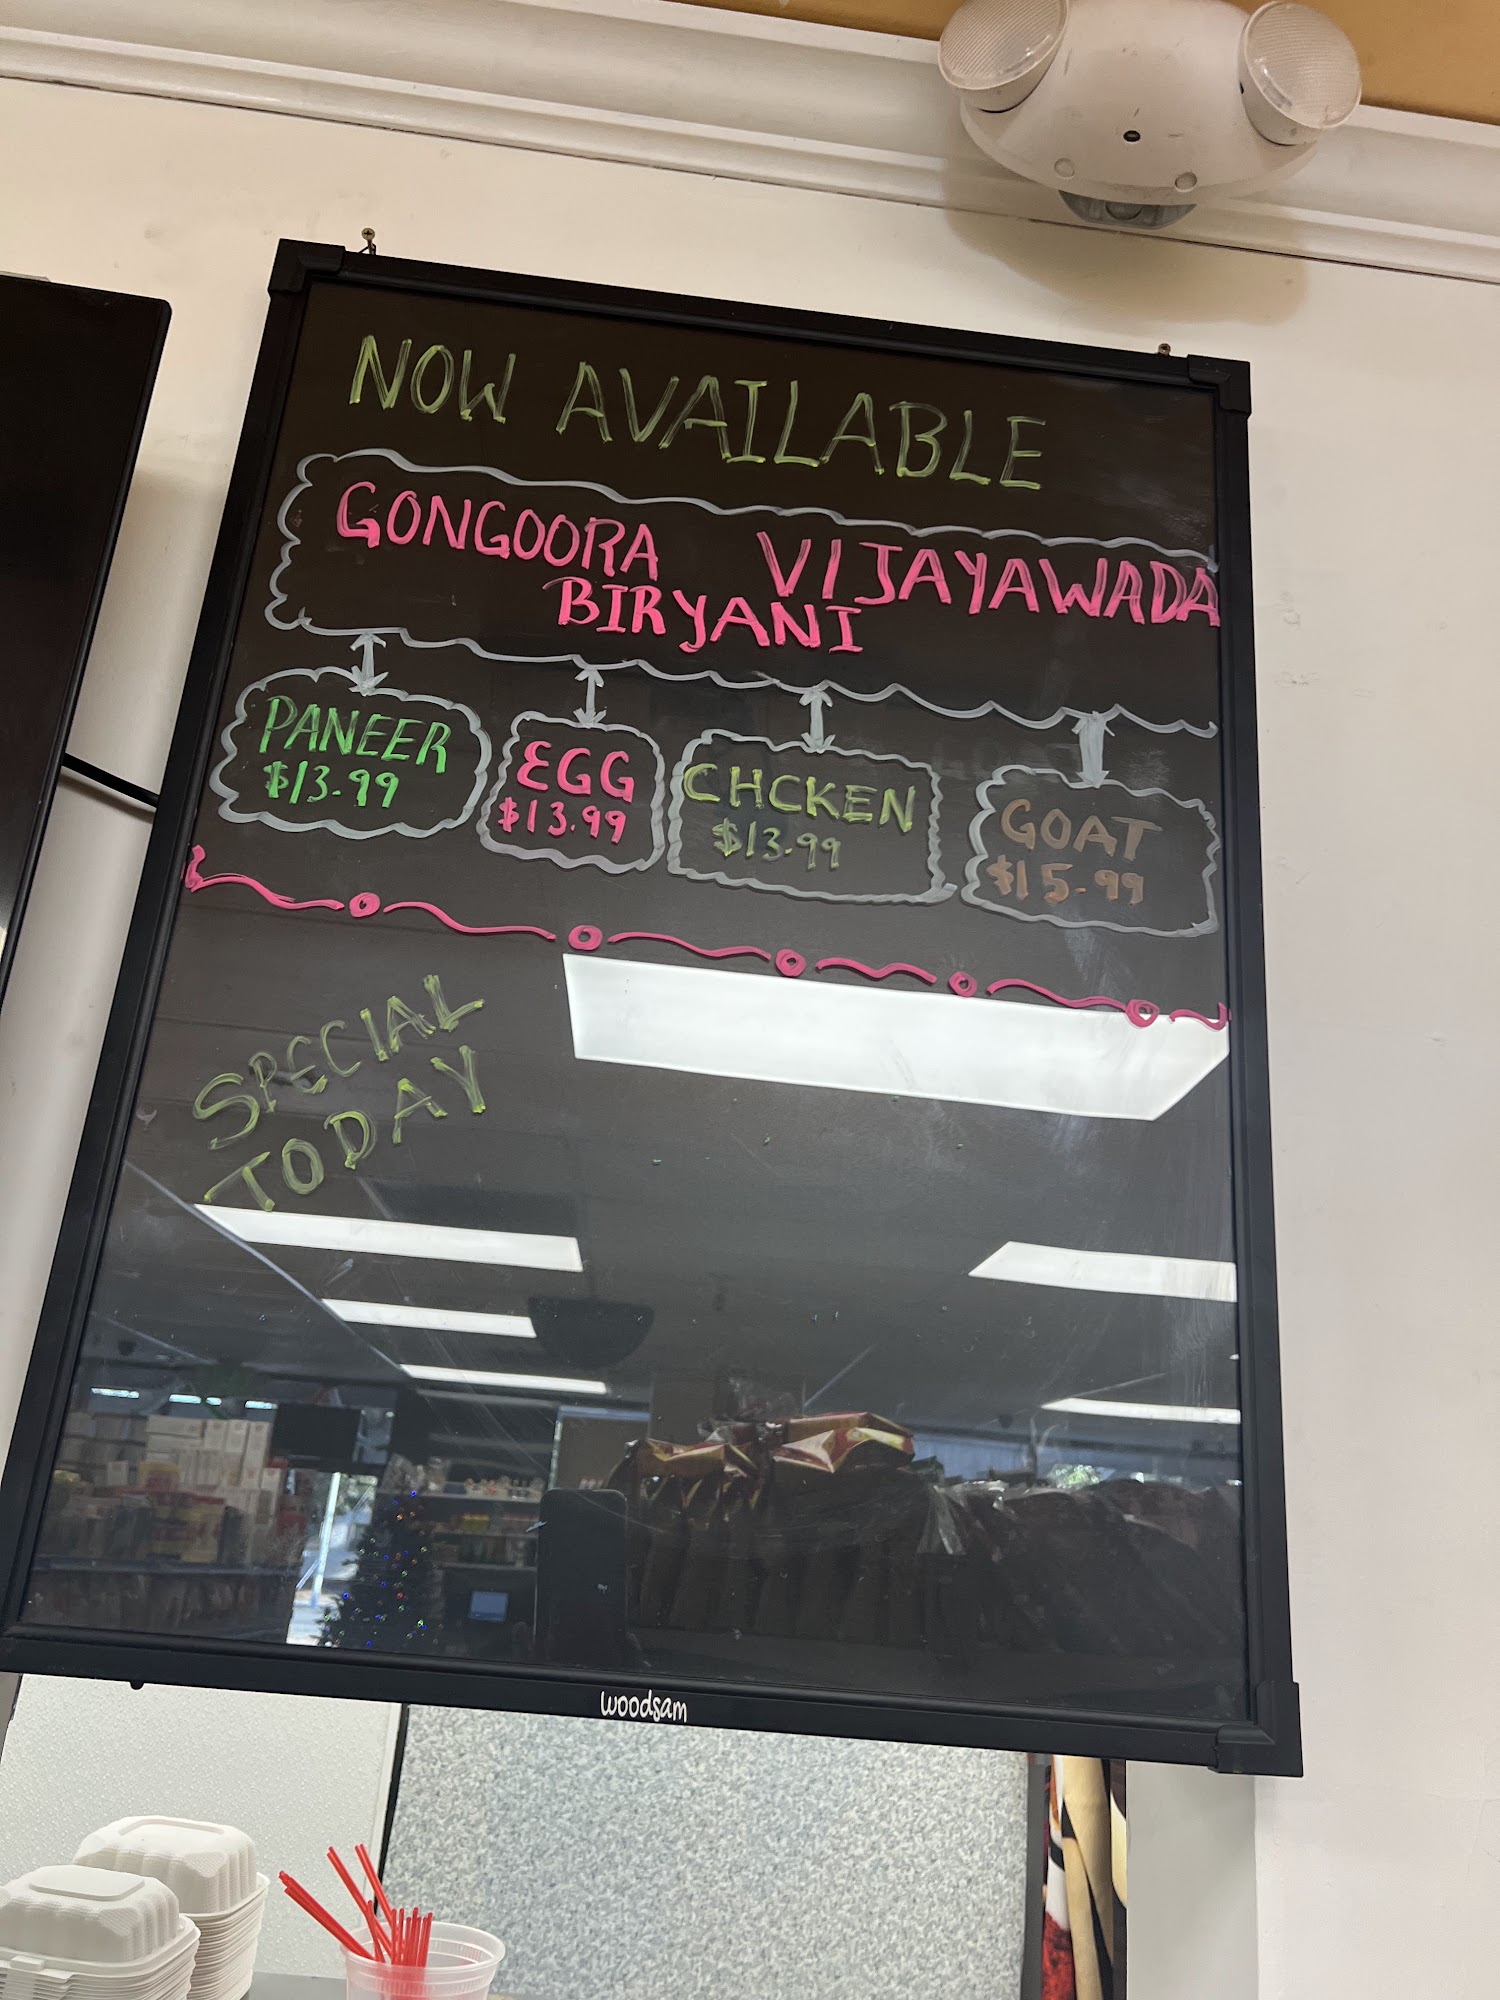 NOW AVAILABLE
GONGOORA VIJAYAWADA
BIRYANI
PANEER
$13.99
EGG
$13.99
CHCKEN
$13.99
GOAT
$15.99
SPECIAL
TODAY
woodsam